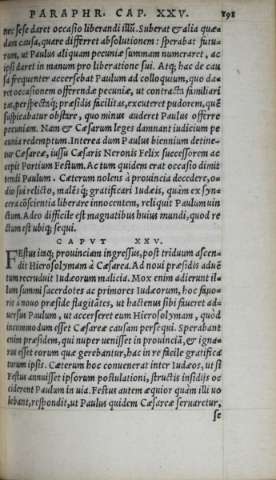 PARAPHR. CAP. XXV. 191
nec sese daret occasio liberandi illũ. Suberat & alia quæ-
dam causa, quare differret absolutionem: sperabat futu-
rum, ut Paulus aliquam pecuniæ summam numeraret, ac
ipsi daret in manum pro liberatione sui. Atq; hac de cau
sa frequenter accersebat Paulum ad colloquium, quo da-
ret occasionem offerendæ pecuniæ, ut contractis familiari
tas, perspectaq; præsidis facilitas, excuteret pudorem, quẽ
suspicabatur obstare, quo minus auderet Paulus offerre
pecuniam. Nam & Cæsarum leges damnant iudicium pe
cunia redemptum. Interea dum Paulus biennium detine-
tur Cæsareæ, iussu Cæsaris Neronis Felix successorem ac
cepit Portium Festum. Ac tum quidem erat occasio dimit
tendi Paulum. Cæterum nolens à prouincia decedere, o-
dio sui relicto, malẽsq; gratificari Iudæis, quàm ex syn-
cera cõscientia liberare innocentem, reliquit Paulum uin
ctum. Adeo difficile est magnatibus huius mundi, quod re
ctum est ubiq; sequi.
CAPVT XXV.
FEstus itaq; prouinciam ingressus, post triduum ascen-
dit Hierosolymam à Cæsarea. Ad noui præsidis aduẽ
tum recruduit Iudæorum malicia. Mox enim adierunt il-
lum summi sacerdotes ac primores Iudæorum, hoc fauo-
ris à nouo præside flagitãtes, ut hactenus sibi faueret ad-
uersus Paulum, ut accerseret eum Hierosolymam, quod
incommodum esset Cæsareæ causam persequi. Sperabant
enim præsidem, qui nuper uenisset in prouinciã, & igna-
rus esset rorum quæ gerebantur, hac in re facilè gratificã
turum ipsis. Cæterum hoc conuenerat inter Iudæos, ut si
Festus annuisset ipsorum postulationi, structis insidijs oc
ciderent Paulum in uia. Festus autem æquior quàm illi uo
lebant, respondit, ut Paulus quidem Cæsareæ seruaretur,
se